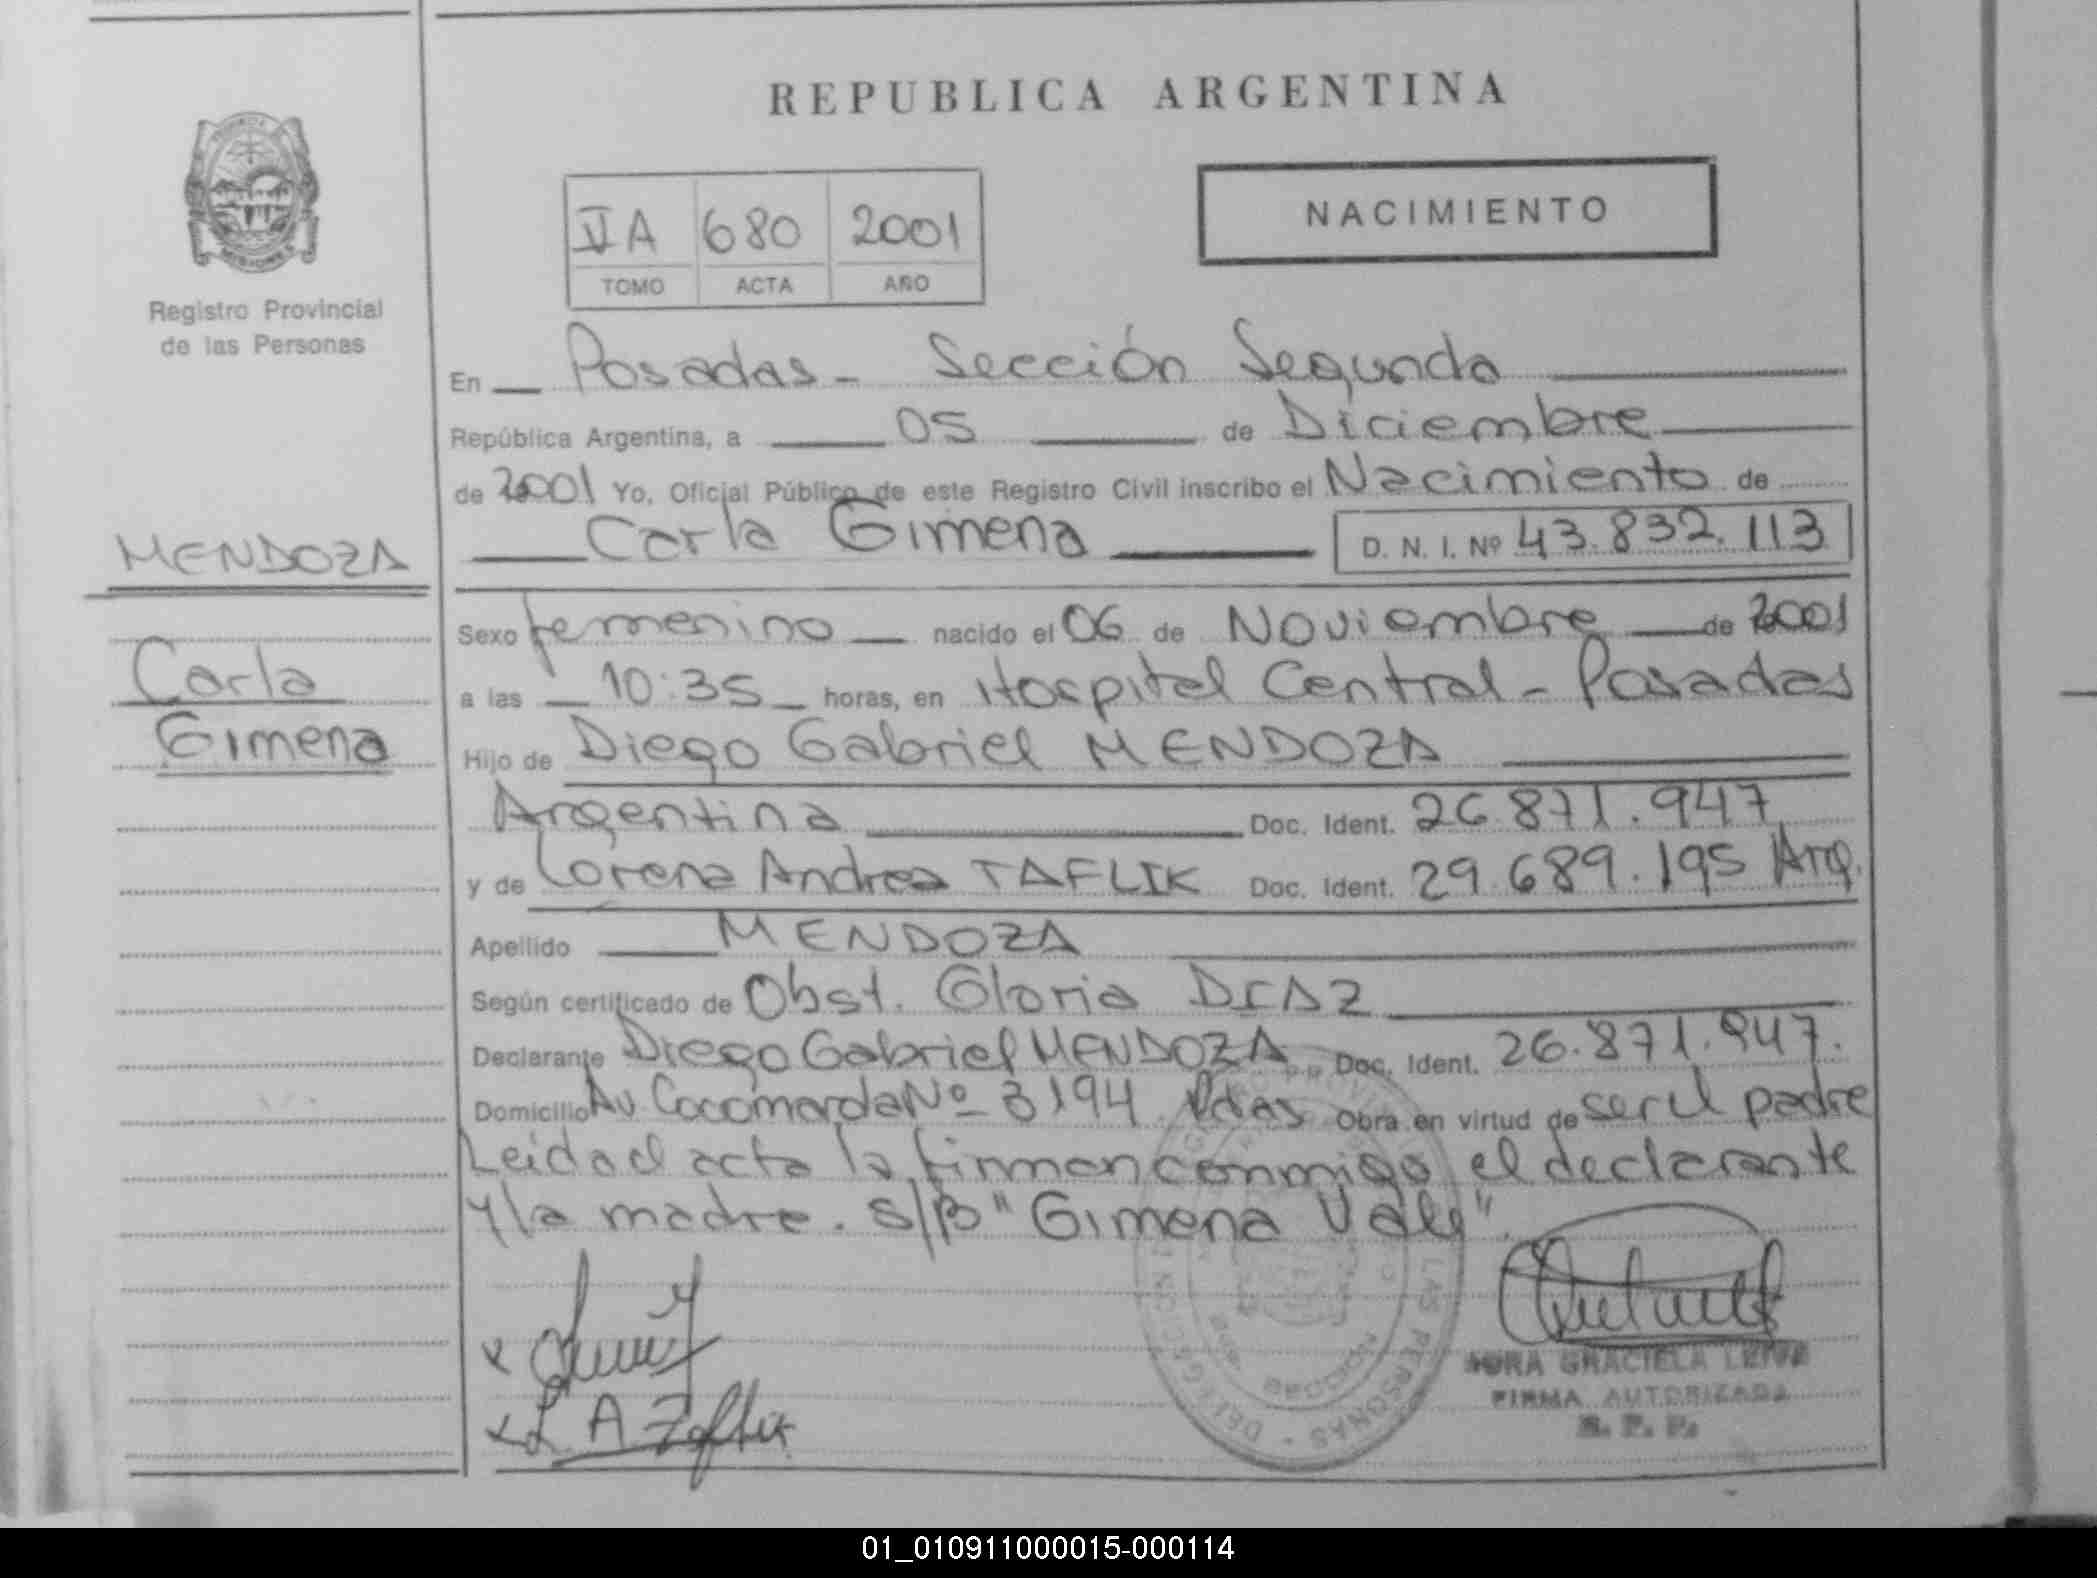 REPUBLICA ARGENTINA
NACIMIENTO
VA 680 2001
TOMO ACTA AÑO
Registro Provincial
de las Personas
En Posadas - Sección Segunda
República Argentina, a 05 de Diciembre
de 2001 Yo, Oficial Público de este Registro Civil inscribo el Nacimiento de
Carla Gimena D. N. I. Nº 43.832.113
MENDOZA
Carla
Gimena
Sexo femenino nacido el 06 de Noviembre de 2001
a las 10:35 horas, en Hospital Central - Posadas
Hijo de Diego Gabriel MENDOZA
Argentina Doc. Ident. 26.871.947
y de Lorena Andrea TAFLIK Doc. Ident. 29.689.195 Arg.
Apellido MENDOZA
Según certificado de Obst. Gloria DIAZ
Declarante Diego Gabriel MENDOZA Doc. Ident. 26.871.947.
Domicilio Av. Cocomarola Nº 3194 Pdas Obra en virtud de ser el padre
Leida el acta la firman conmigo el declarante
y la madre. s/B "Gimena Vale".
x
x L A Taflik
GRACIELA
FIRMA AUTORIZADA
R. P. P.
LAS PERSONAS
01_010911000015-000114